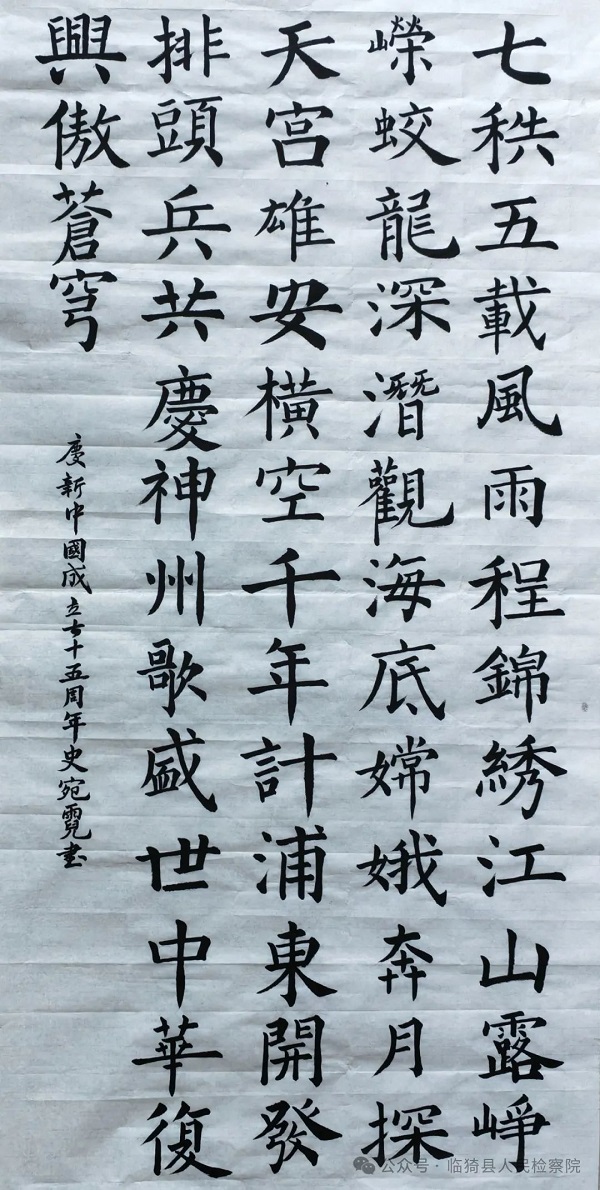 七秩五載風雨程錦綉江山露崢
嶸蛟龍深潛觀海底嫦娥奔月探
天宫雄安橫空千年計浦東開發
排頭兵共慶神州歌盛世中華復
興傲蒼穹
慶新中國成立七十五周年史宛霓書
公众号·临猗县人民检察院